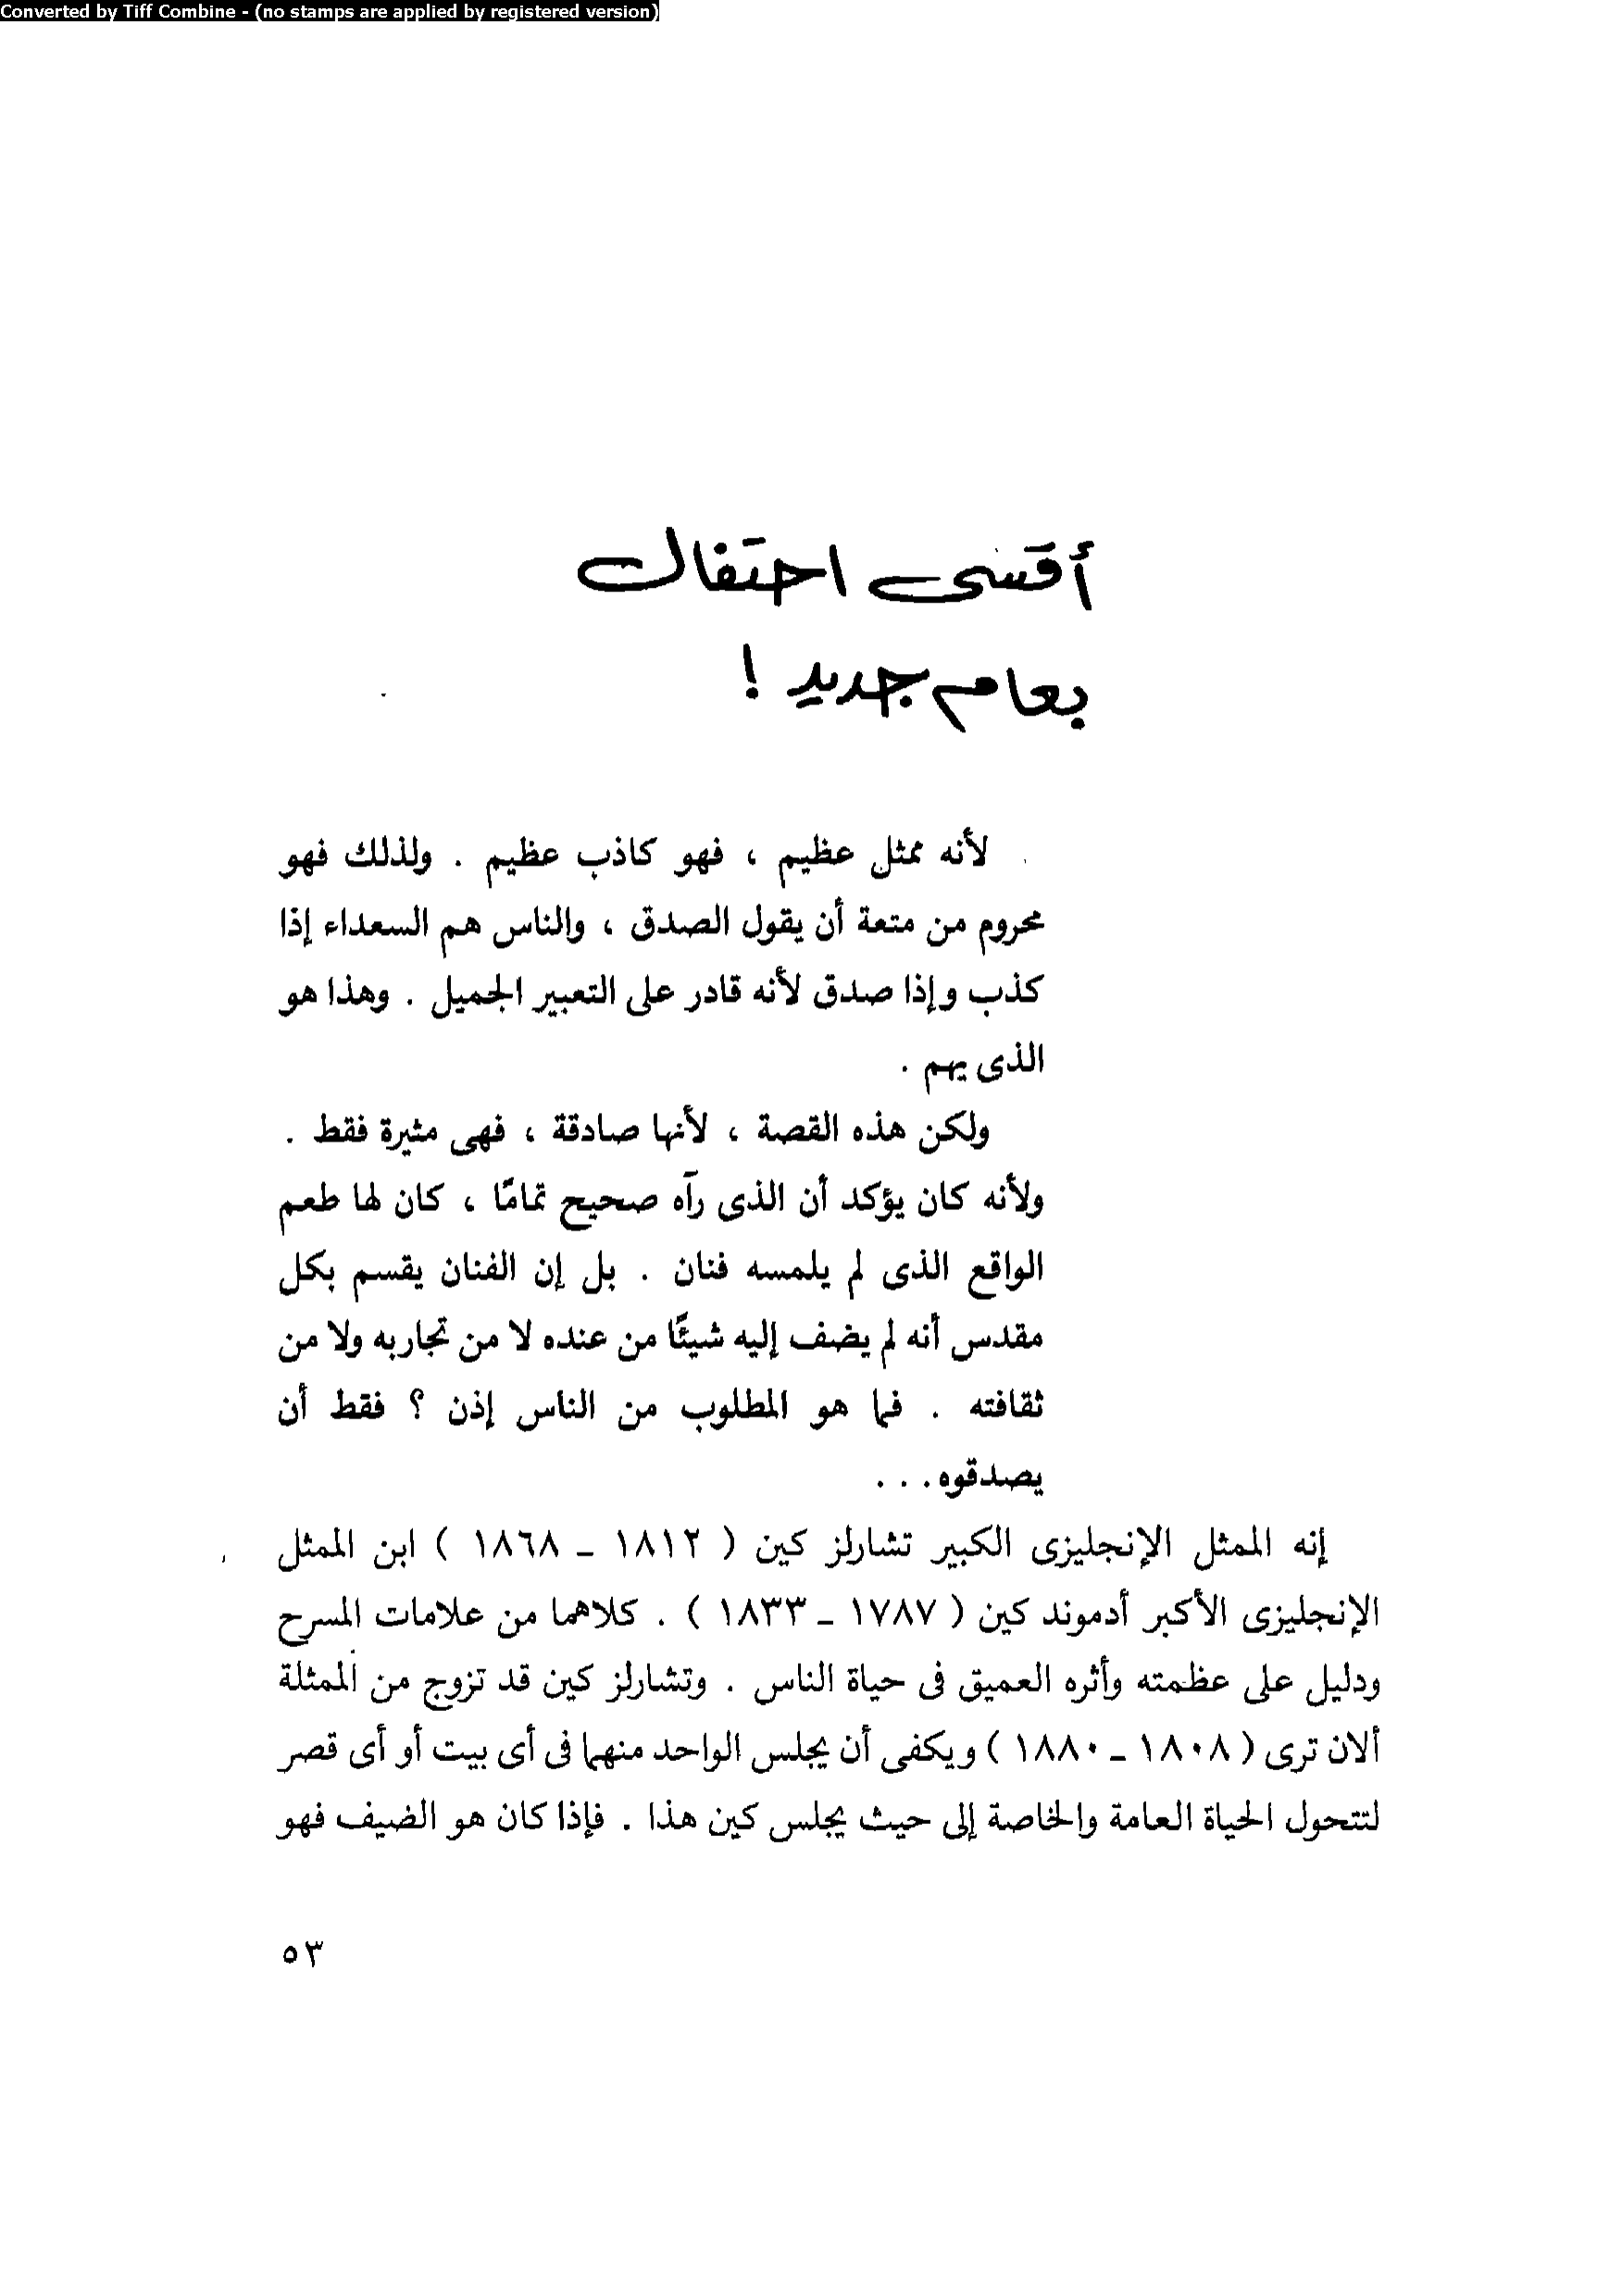 Converted by Tiff Combine - (no stamps are applied by registered version)
أقسى احتفال
بعام جديد !
لأنه ممثل عظيم ، فهو كاذب عظيم . ولذلك فهو
محروم من متعة أن يقول الصدق ، والناس هم السعداء إذا
كذب وإذا صدق لأنه قادر على التعبير الجميل . وهذا هو
الذى يهم .
ولكن هذه القصة ، لأنها صادقة ، فهى مثيرة فقط .
ولأنه كان يؤكد أن الذى رآه صحيح تمامًا ، كان لها طعم
الواقع الذى لم يلمسه فنان . بل إن الفنان يقسم بكل
مقدس أنه لم يضف إليه شيئًا من عنده لا من تجاربه ولا من
ثقافته . فما هو المطلوب من الناس إذن ؟ فقط أن
يصدقوه . . .
إنه الممثل الإنجليزى الكبير تشارلز كين ( ١٨١٢ ـ ١٨٦٨ ) ابن الممثل
الإنجليزى الأكبر أدموند كين ( ١٧٨٧ ـ ١٨٣٣ ) . كلاهما من علامات المسرح
ودليل على عظمته وأثره العميق فى حياة الناس . وتشارلز كين قد تزوج من الممثلة
ألان ترى ( ١٨٠٨ ـ ١٨٨٠ ) ويكفى أن يجلس الواحد منهما فى أى بيت أو أى قصر
لتتحول الحياة العامة والخاصة إلى حيث يجلس كين هذا . فإذا كان هو الضيف فهو
٥٣